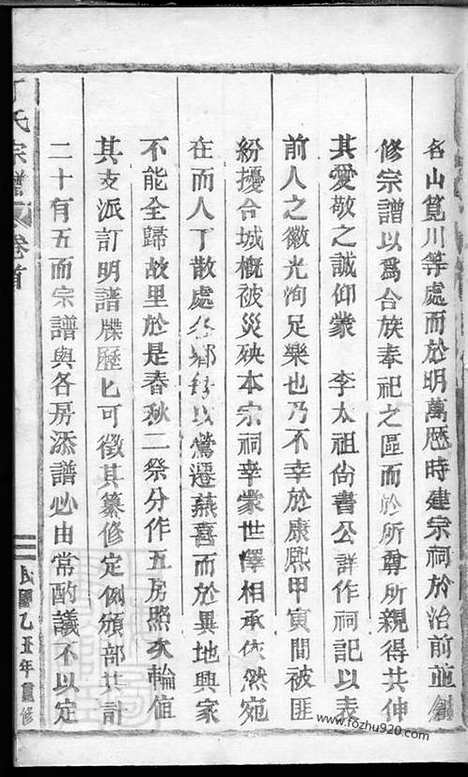 各山筧川等處而於明萬歷時建宗祠於治前並創
修宗譜以爲合族奉祀之區而於所尊所親得共伸
其愛敬之誠仰蒙 李太祖尚書公詳作祠記以表
前人之徽光洵足樂也乃不幸於康熙甲寅間被匪
紛擾合城概被災殃本宗祠幸蒙世澤相承依然宛
在而人丁散處各鄉村以鶯遷燕喜而於異地興家
不能全歸故里於是春秋二祭分作五房照次輪值
其支派訂明譜牒歷匕可徵其纂修定例頒部共計
二十有五而宗譜與各房添譜必由常酌議不以定
丁氏宗譜 卷首
民國乙丑年重修
www.fozhu920.com